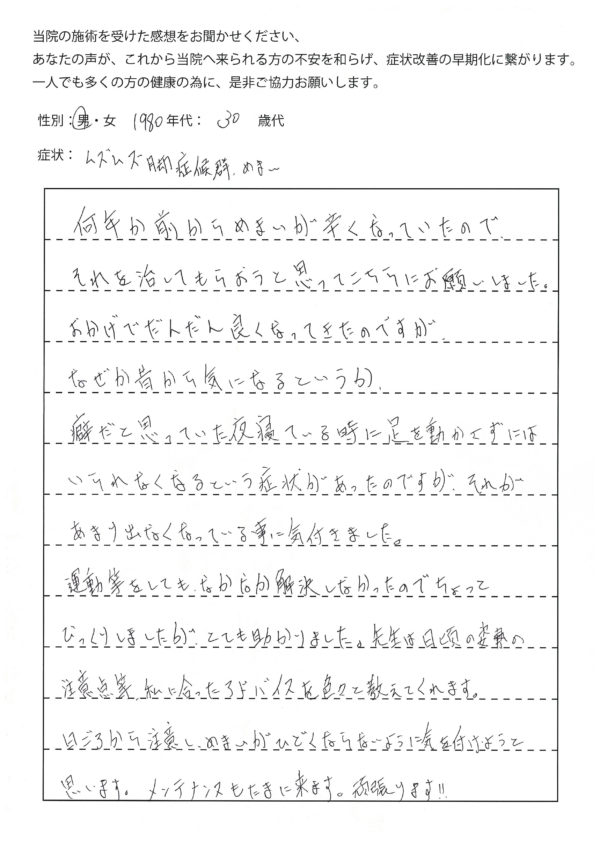 当院の施術を受けた感想をお聞かせください、
あなたの声が、これから当院へ来られる方の不安を和らげ、症状改善の早期化に繋がります。
一人でも多くの方の健康の為に、是非ご協力お願いします。
性別：男・女 1980年代： 30 歳代
症状： ムズムズ脚症候群、めまい
何年か前からめまいが辛くなっていたので、
それを治してもらおうと思ってこちらにお願いしました。
おかげでだんだん良くなってきたのですが、
なぜか昔から気になるというか、
癖だと思っていた夜寝ている時に足を動かさずには
いられなくなるという症状があったのですが、それが
あまり出なくなっている事に気付きました。
運動等をしても、なかなか解決しなかったのでちょって
びっくりしましたが、とても助かりました。先生は日頃の姿勢の
注意点等、私に合ったアドバイスを色々と教えてくれます。
日ごろから注意し、めまいがひどくならないように気を付けようて
思います。メンテナンスもたまに来ます。頑張ります!!